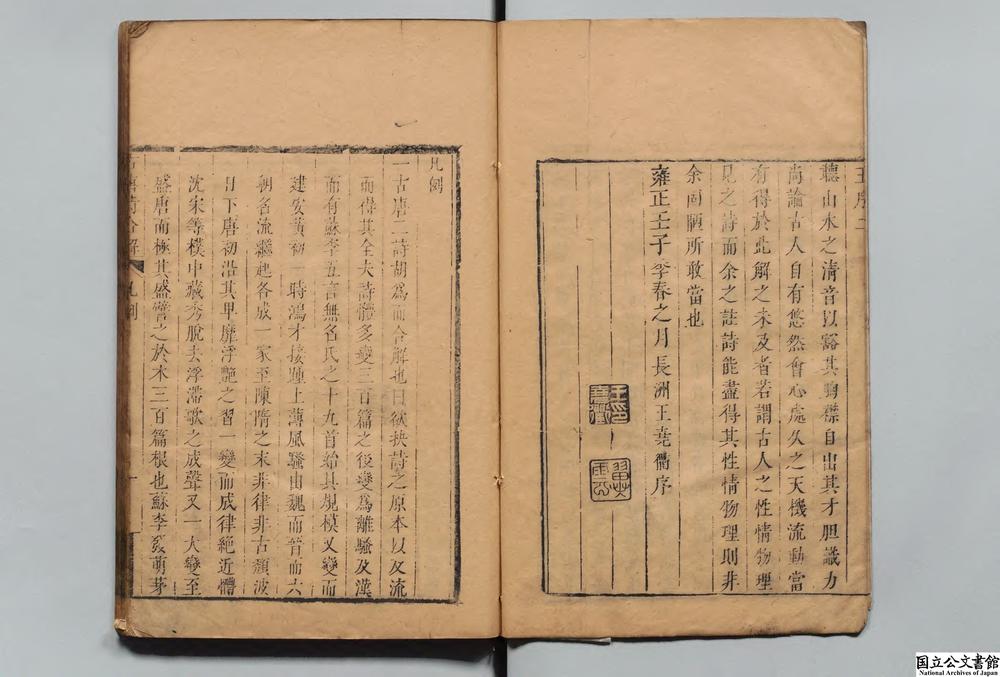 王序二
聽山水之清音以豁其胸襟自出其才胆識力
尚論古人自有悠然會心處久之天機流動當
有得於此解之未及者若謂古人之性情物理
見之詩而余之註詩能盡得其性情物理則非
余固陋所敢當也
雍正壬子季春之月長洲王堯衢序
凡例
一古唐二詩胡為而合解也曰欲抉詩之原本以及流
而得其全夫詩體多變三百篇之後變為離騷及漢
而有蘇李五言無名氏之十九首始具規模又變而
建安黃初一時鴻才接踵上薄風騷由魏而晉而六
朝名流繼起各成一家至陳隋之末非律非古頹波
日下唐初沿其卑靡浮艷之習一變而成律絕近體
沈宋等樸中藏秀脫去浮滯歌之成聲又一大變至
盛唐而極其盛譬之於木三百篇根也蘇李發萌芽
古唐詩合解 凡例 一
国立公文書館
National Archives of Japan